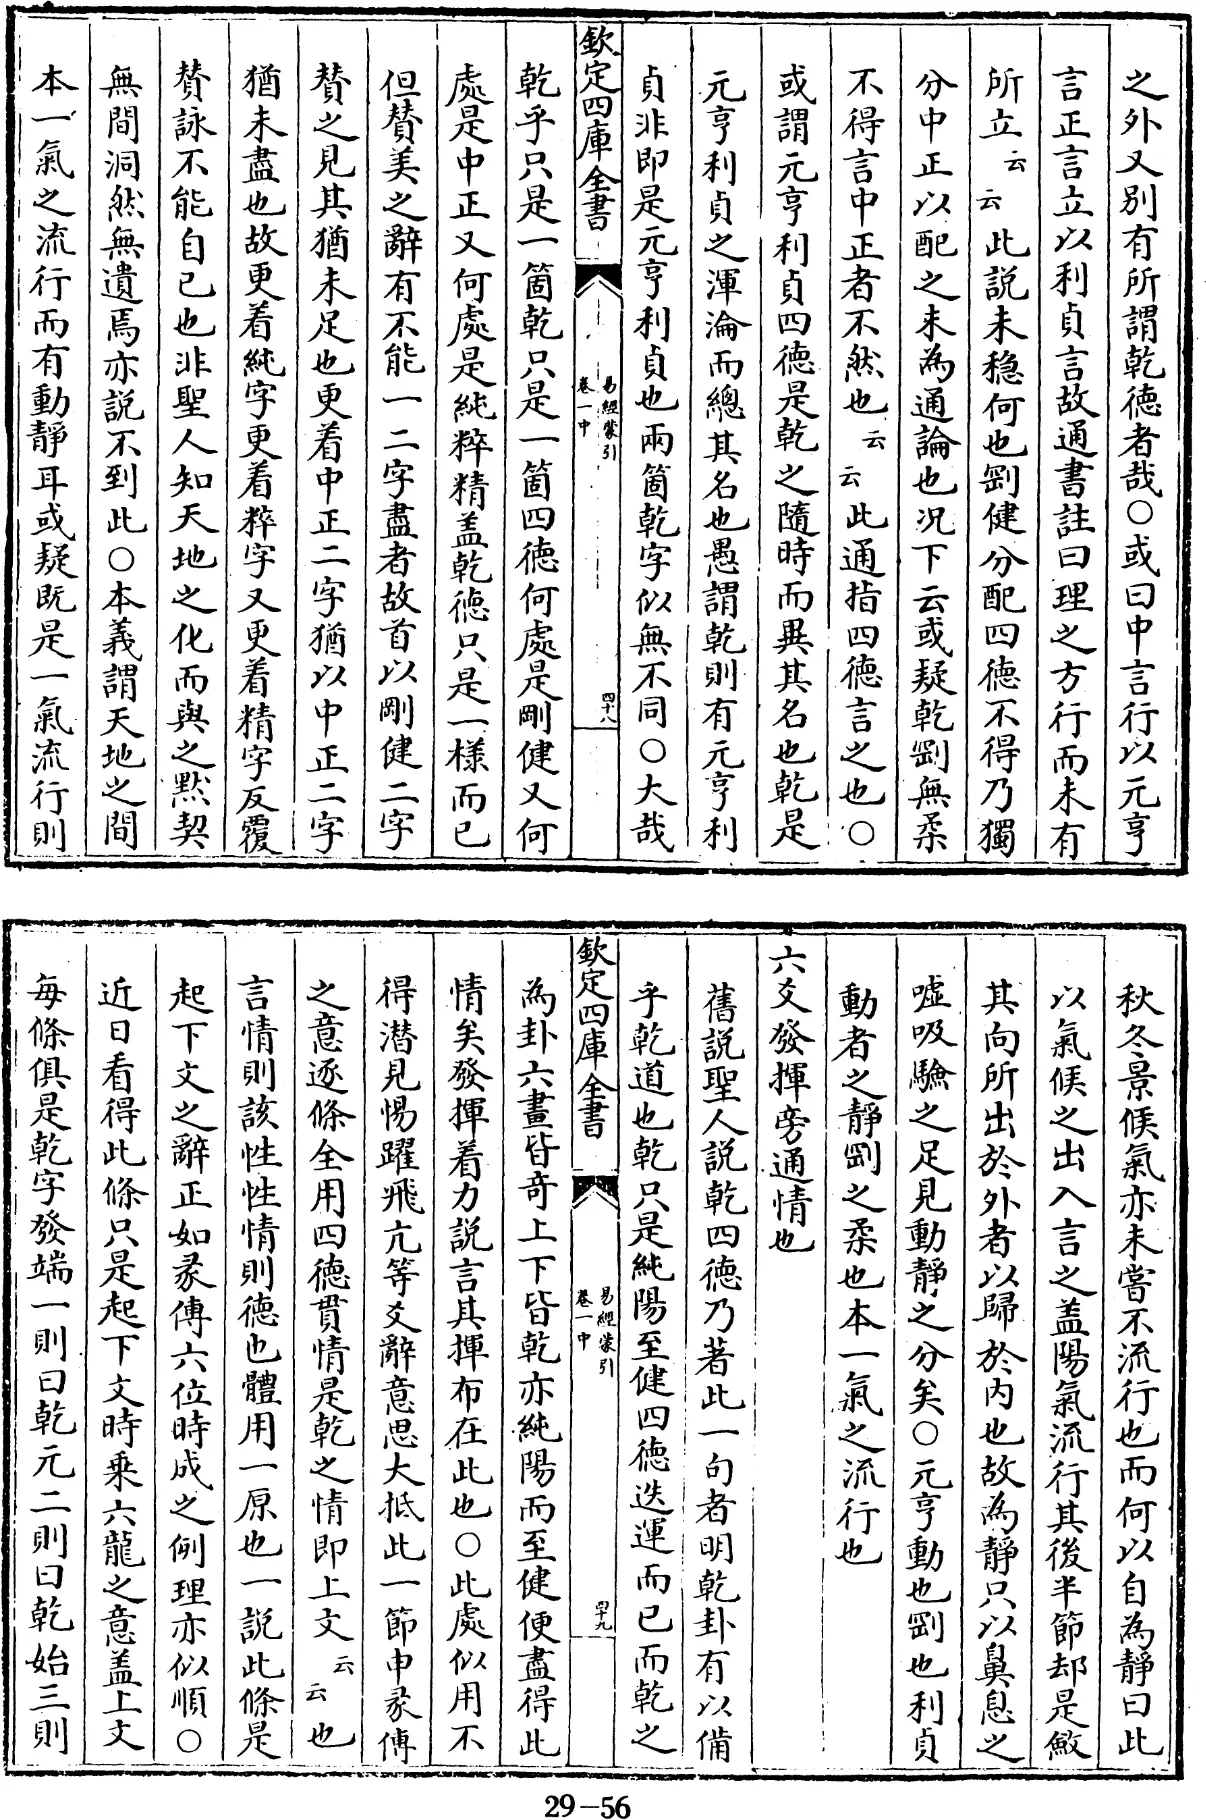 之外又别有所謂乾德者哉○或曰中言行以元亨
言正言立以利貞言故通書註曰理之方行而未有
所立云云此説未穏何也劉健分配四德不得乃獨
分中正以配之未為通論也况下云或疑乾剛無柔
不得言中正者不然也云云此通指四德言之也○
或謂元亨利貞四德是乾之隨時而異其名也乾是
元亨利貞之渾淪而總其名也愚謂乾則有元亨利
貞非即是元亨利貞也兩箇乾字似無不同○大哉
欽定四庫全書
易經蒙引
卷一中
四十八
乾乎只是一箇乾只是一箇四德何處是剛健又何
處是中正又何處是純粹精盖乾德只是一様而已
但賛美之辭有不能一二字盡者故首以剛健二字
賛之見其猶未足也更着中正二字猶以中正二字
猶未盡也故更着純字更着粹字又更着精字反覆
賛詠不能自已也非聖人知天地之化而與之黙契
無間洞然無遺焉亦説不到此○本義謂天地之間
本一氣之流行而有動靜耳或疑既是一氣流行則
秋冬景候氣亦未嘗不流行也而何以自為靜曰此
以氣候之出入言之盖陽氣流行其後半節却是斂
其向所出於外者以歸於内也故為靜只以鼻息之
嘘吸驗之足見動靜之分矣○元亨動也剛也利貞
動者之靜剛之柔也本一氣之流行也
六爻發揮旁通情也
舊説聖人説乾四德乃著此一句者明乾卦有以備
乎乾道也乾只是純陽至健四德迭運而已而乾之
欽定四庫全書
易經蒙引
卷一中
四十九
為卦六畫皆竒上下皆乾亦純陽而至健便盡得此
情矣發揮着力説言其揮布在此也○此處似用不
得潛見惕躍飛亢等爻辭意思大抵此一節申彖傳
之意逐條全用四德貫情是乾之情即上文云云也
言情則該性性情則德也體用一原也一説此條是
起下文之辭正如彖傳六位時成之例理亦似順○
近日看得此條只是起下文時乗六龍之意盖上文
每條俱是乾字發端一則曰乾元二則曰乾始三則
29-56